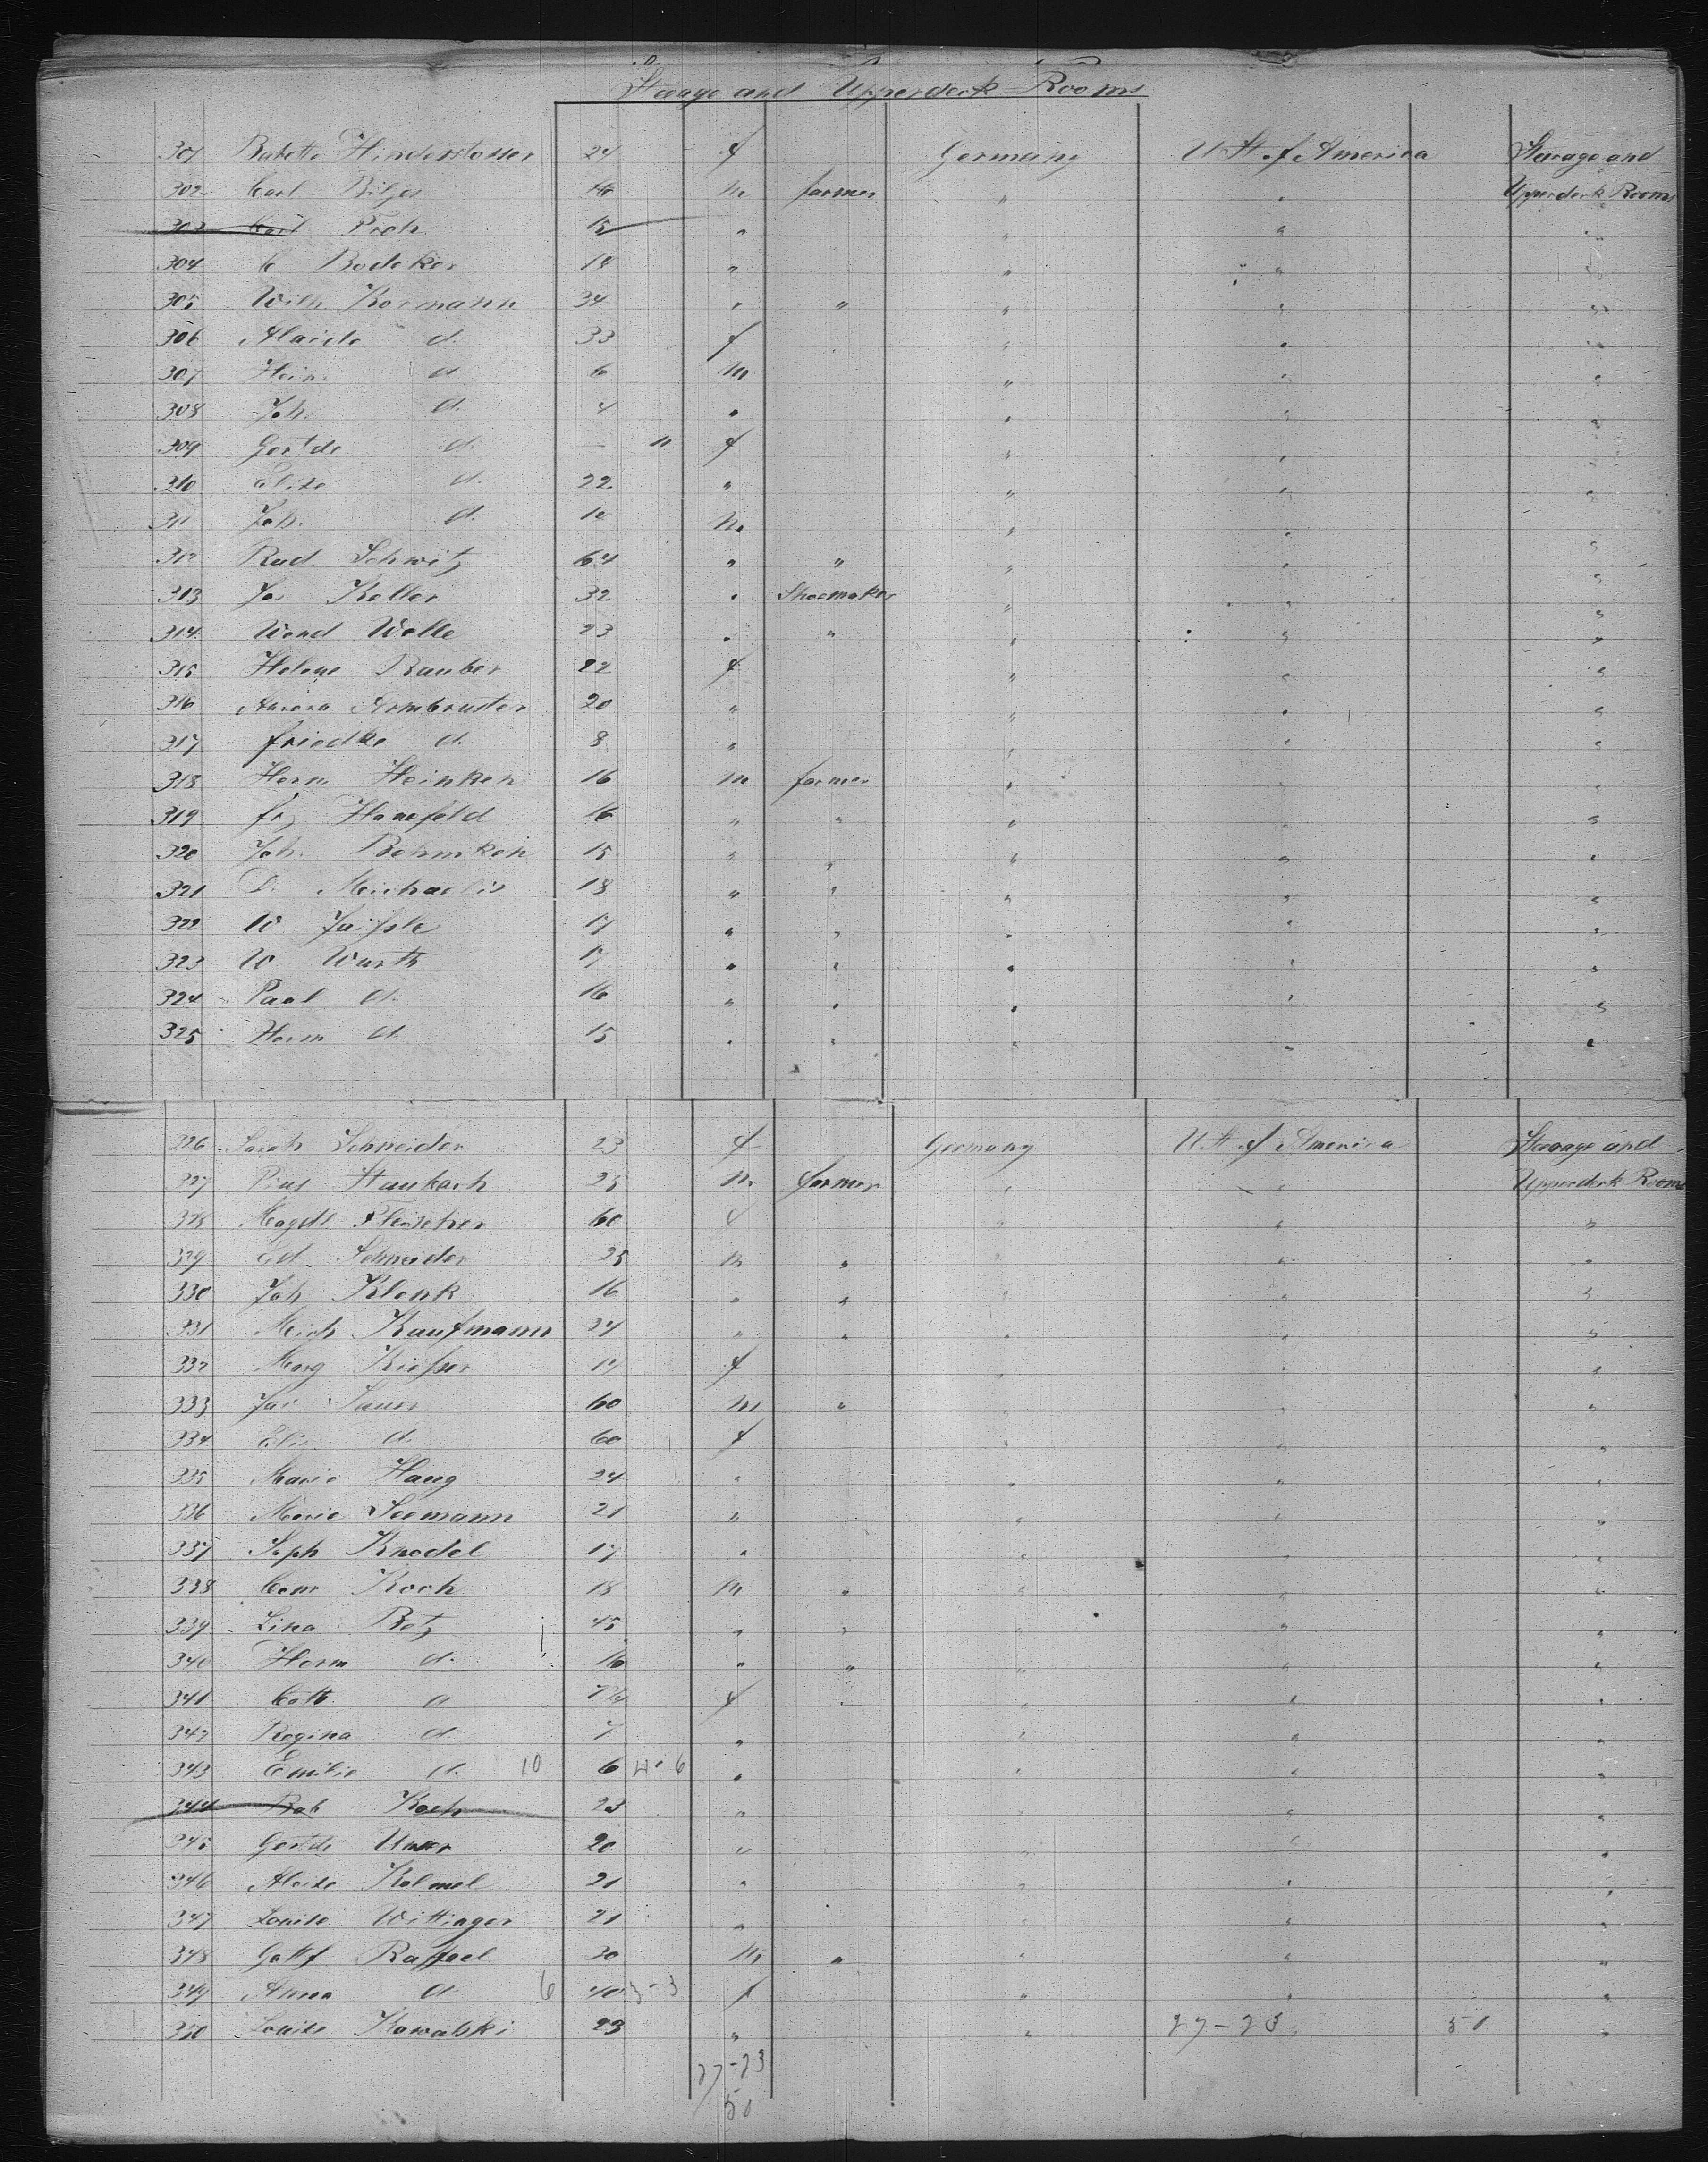 Steerage and Upperdeck-Rooms
301 Babette Hinderstosser 24 f Germany U St. of America Steerage and
302 Carl Bilger 16 m farmer " " Upperdeck Rooms
303 Carl Proh 15 " " " "
304 C Bodeker 14 " " " "
305 Wilh. Kormann 34 " " " " "
306 Alaide d. 33 f " " "
307 Hein. d 6 m " " "
308 Joh. d. 4 " " " "
309 Gertde d. — 11 f " " "
310 Elise d. 22 " " " "
311 Joh. d. m " " "
312 Rud. Schwitz 64 " " " " "
313 Jos Keller 32 " Shoemaker " " "
314 Wend Wolle 23 " " " " "
315 Helene Rauber 22 f " " "
316 Armbruster 20 " " " "
317 friedke d. 8 " " " "
318 Herm Heinken 16 m farmer " " "
319 frz Hanefeld 16 " " " " "
320 Joh. Behmken 15 " " " " "
321 D. Michaelis 18 " " " " "
322 W 17 " " " " "
323 W Wurth 17 " " " " "
324 Paul d. 16 " " " " "
325 Herm d. 15 " " " " "
326 Sarah Schneider 23 f Germany U St. of America Steerage and
327 Pius Staubach 25 m farmer " " Upperdeck Rooms
328 Magdl Fleischer 60 f " " "
329 Ed. Schneider 25 m " " " "
330 Joh Klenk 16 " " " " "
331 Mich Kaufmann 24 " " " " "
332 Marg Kiesser 17 f " " "
333 Jac Sauer 60 m " " " "
334 Elis d. 60 f " " "
335 Marie Haug 24 " " " "
336 Marie Seemann 21 " " " "
337 Soph Knodel 17 " " " "
338 Koch 18 m " " " "
339 Lina Betz 45 " " " " "
340 Herm d. 16 " " " " "
341 Cath. d f " " "
342 Regina d. 7 " " " "
343 Emilie d. 10 6 4 · 6 " " " "
344 Rob Koch 23 " " " "
345 Gertde 20 " " " "
346 Kolmel 21 " " " "
347 Louise Wittinger 21 " " " "
348 Gottf Raffael 30 m " " " "
349 Anna d 6 40 3-3 f " " "
350 Louise Kowalski 23 " " 27-23 " 51 "
27-23
50